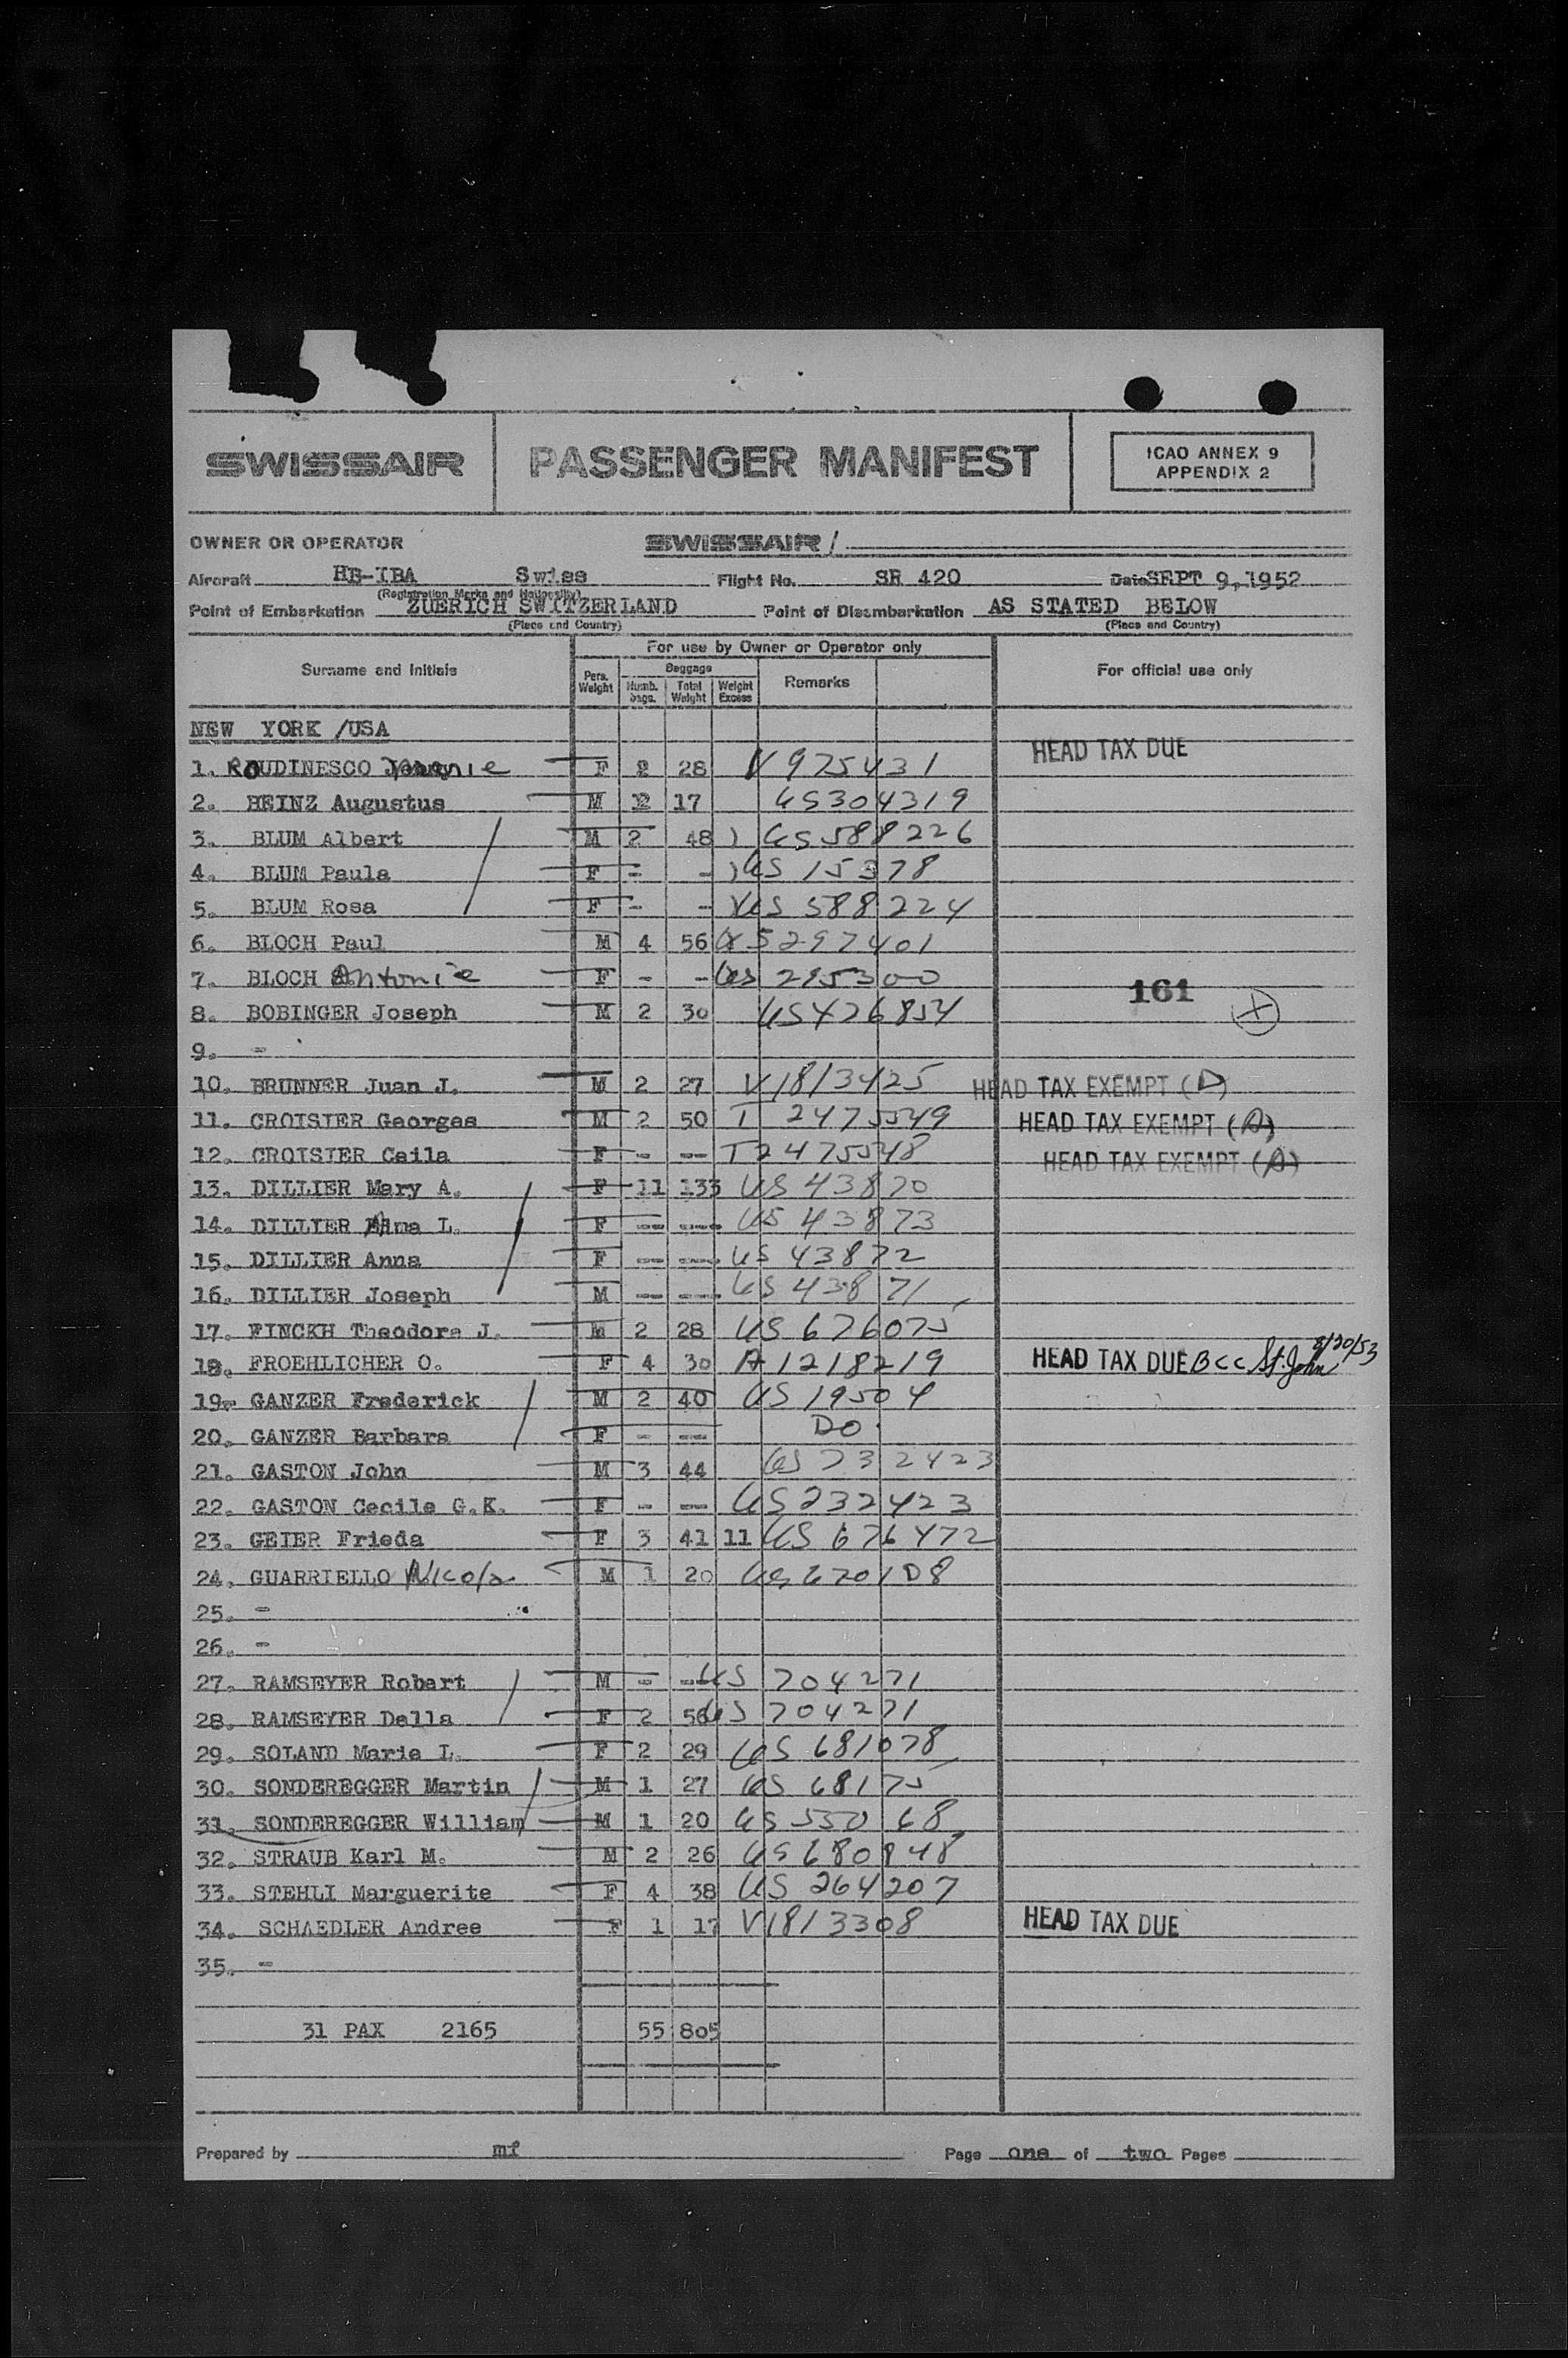 SWISSAIR PASSENGER MANIFEST ICAO ANNEX 9
APPENDIX 2
OWNER OR OPERATOR SWISSAIR /
Aircraft HB-IBA Swiss Flight No. SR 420 Date SEPT 9, 1952
(Registration Marks and Nationality)
Point of Embarkation ZUERICH SWITZERLAND Point of Disembarkation AS STATED BELOW
(Place and Country) (Place and Country)
For use by Owner or Operator only
Surname and Initials Pers. Weight Baggage Remarks For official use only
Numb. bags. Total Weight Weight Excess
NEW YORK /USA
HEAD TAX DUE
1. ROUDINESCO F 2 28 V 975431
2. HEINZ Augustus M 2 17 US304319
3. BLUM Albert M 2 48 ) US 588226
4. BLUM Paula F - - ) US 15378
5. BLUM Rosa F - - ) US 588224
6. BLOCH Paul M 4 56 US297401
7. BLOCH Antonie F - - US 295300
161
8. BOBINGER Joseph M 2 30 US426854
9. -
10. BRUNNER Juan J. M 2 27 V1813425 HEAD TAX EXEMPT (D)
11. CROISIER Georges M 2 50 T 2475549 HEAD TAX EXEMPT (A)
12. CROISIER Caila F - -- T2475548 HEAD TAX EXEMPT (A)
13. DILLIER Mary A. F 11 133 US 43870
14. DILLIER Alma L. F -- --- US 43873
15. DILLIER Anna F -- --- US 43872
16. DILLIER Joseph M -- --- US 43871
17. FINCKH Theodore J. M 2 28 US 676075
18. FROEHLICHER O. F 4 30 A1218219 HEAD TAX DUE BCC St. John 8/20/53
19. GANZER Frederick M 2 40 US 19504
20. GANZER Barbara F - -- DO.
21. GASTON John M 3 44 US 232423
22. GASTON Cecile G.K. F - -- US232423
23. GEIER Frieda F 3 41 11 US 676472
24. GUARRIELLO Nicola M 1 20 US 670108
25. -
26. -
27. RAMSEYER Robert M - -- US 704271
28. RAMSEYER Della F 2 56 US 704271
29. SOLAND Marie L. F 2 29 US 681078
30. SONDEREGGER Martin M 1 27 US 68175
31. SONDEREGGER William M 1 20 US 55068
32. STRAUB Karl M. M 2 26 US 680848
33. STEHLI Marguerite F 4 38 US 264207
34. SCHAEDLER Andree F 1 17 V1813308 HEAD TAX DUE
35. -
31 PAX 2165 55 805
Prepared by mf Page one of two Pages